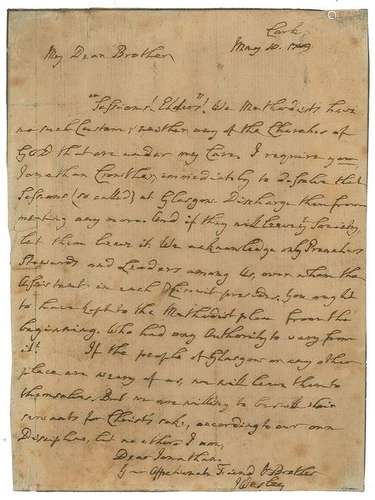 Cork
May 10. 1789
My Dear Brother,
"Sessions! Elders"! We Methodists have
no such Custom, neither any of the Churches of
God that are under my Care. I require you
Jonathan Crowther, immediately to dissolve that
Session (so called) at Glasgow. Discharge them from
meeting any more. And if they will leave Society,
let them leave it. We acknowledge only Preachers
Stewards and Leaders among us, over whom the
Assistant in each Circuit presides. You ought
to have kept to the Methodist plan from the
beginning. Who had any Authority to vary from
it? If the people of Glasgow or any other
place are weary of us, we will leave them to
themselves. But we are willing to be still their
servants for Christ's sake, according to our own
Discipline, but no others. I am,
Dear Jonathan,
Your Affectionate Friend & Brother
J Wesley